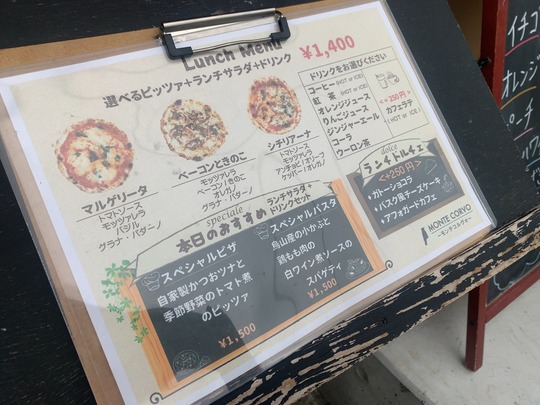 Lunch Menu
¥1,400
選べるピッツァ+ランチサラダ+ドリンク
マルゲリータ
トマトソース
モッツァレラ
バジル
グラナ・パダーノ
ベーコンときのこ
モッツァレラ
ベーコン/きのこ
オレガノ
グラナ・パダーノ
シチリアーナ
トマトソース
モッツァレラ
アンチョビ/オリーブ
ケッパー/オレガノ
ドリンクをお選びください
コーヒー(HOT or ICE)
紅 茶 (HOT or ICE)
オレンジジュース
りんごジュース
ジンジャーエール
コーラ
ウーロン茶
<+250円>
カフェラテ
(HOT or ICE)
dolce
ランチドルチェ
<+250円>
・ガトーショコラ
・バスク風チーズケーキ
・アフォガードカフェ
speciale
本日のおすすめ
ランチサラダ+
ドリンクセット
スペシャルピザ
自家製かつおツナと
季節野菜のトマト煮
のピッツァ
¥1,500
スペシャルパスタ
烏山産の小かぶと
鶏もも肉の
白ワイン煮ソースの
スパゲティ
¥1,500
MONTE CORVO
ーモンテコルヴォー
イチゴ
オレンジ
ピーチ